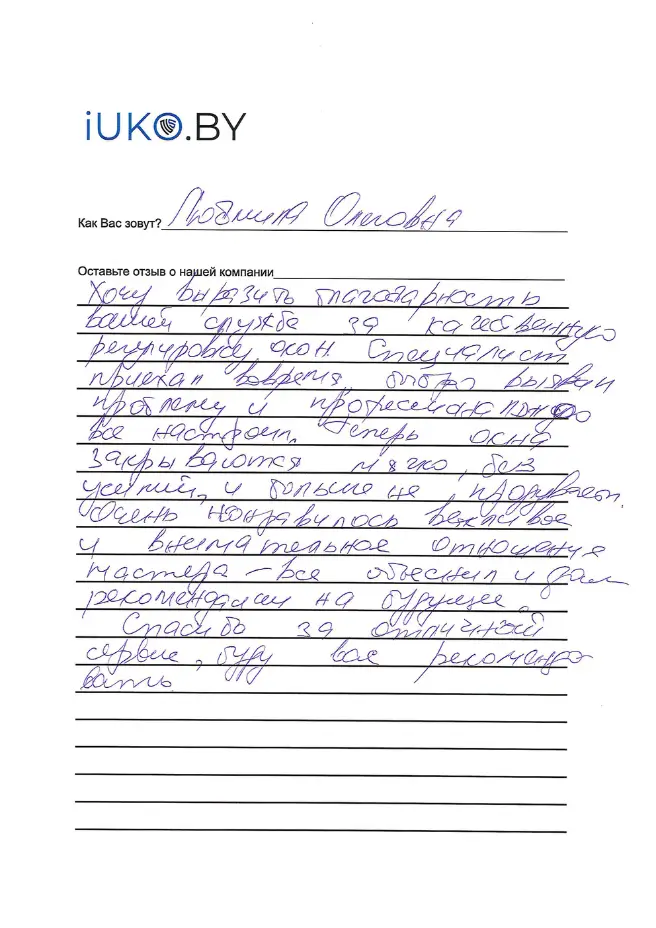 iUKO.BY
Как Вас зовут? Людмила Олеговна
Оставьте отзыв о нашей компании
Хочу выразить благодарность
вашей службе за качественную
регулировку окон. Специалист
приехал вовремя, быстро выявил
проблему и профессионально
все настроил. Теперь окна
закрываются мягко, без
усилий, и больше не продувает.
Очень понравилось вежливое
и внимательное отношение
мастера – все объяснил и дал
рекомендации на будущее.
Спасибо за отличный
сервис, буду вас рекомендо
вать